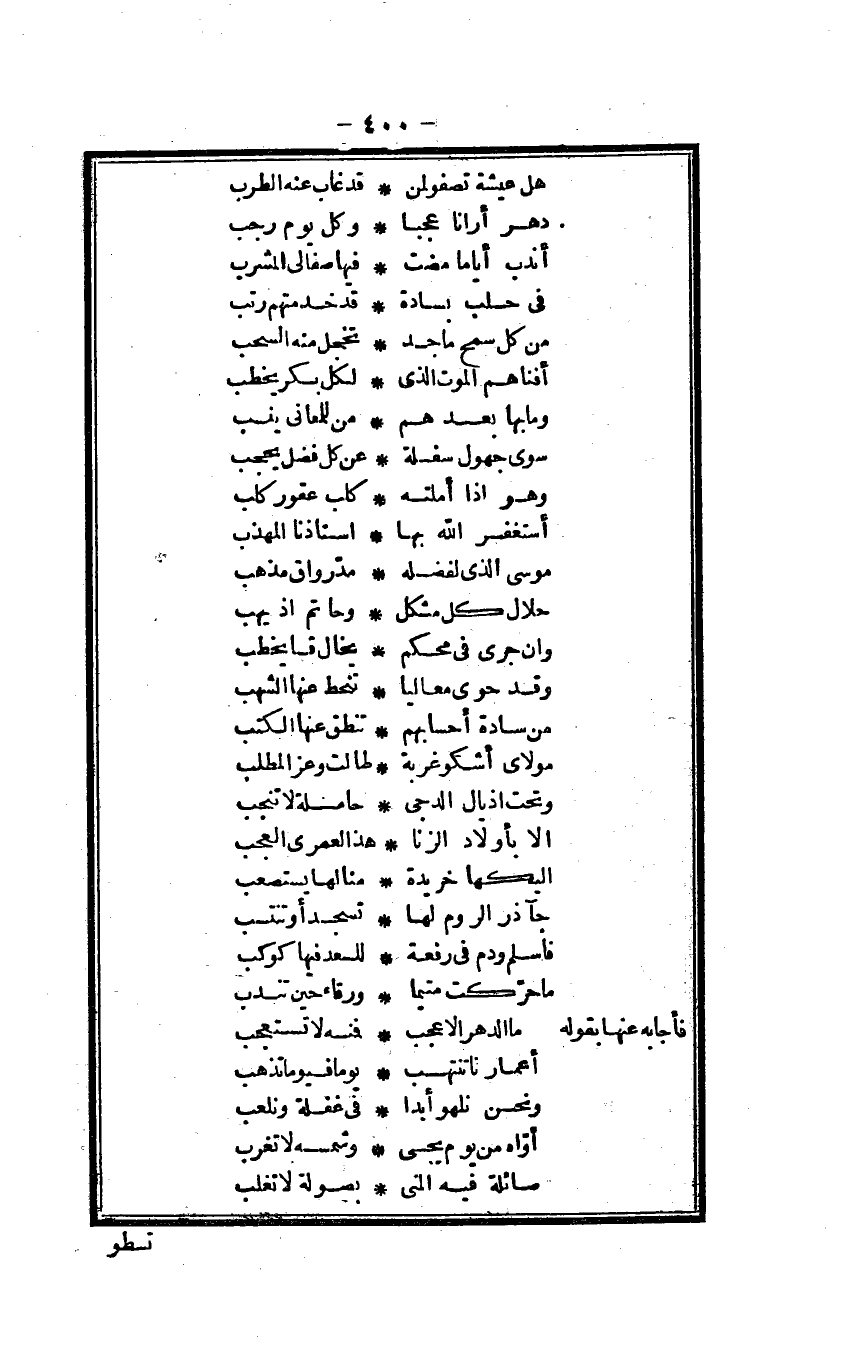 - ٤٠٠ -
هل عيشة تصفولمن * قد غاب عنه الطرب
دهر أرانا عجبا * وكل يوم رجب
أندب أياما مضت * فيها صفالى المشرب
فى حلب بسادة * قد خدمتهم رتب
من كل سمح ماجد * تخجل منه السحب
أفناهم الموت الذى * لكل بكر يخطب
ومابها بعد هم * من للمعانى ينسب
سوى جهول سفلة * عن كل فضل يحجب
وهو اذا أملته * كلب عقور كلب
أستغفر الله بها * استاذنا المهذب
موسى الذى لفضله * مدّ رواق مذهب
حلال كل مشكل * وحاتم اذ يهب
وان جرى فى محكم * يخال قسا يخطب
وقد حوى معاليا * تنحط عنها الشهب
من سادة أحسابهم * تنطق عنها الكتب
مولاى أشكو غربة * طالت وعز المطلب
وتحت اذيال الدجى * حاملة لا تنجب
الا بأولاد الزنا * هذا لعمرى العجب
اليكها خريدة * منالها يستصعب
جآذر الروم لها * تسجد أو تنتسب
فاسلم ودم فى رفعة * للسعد فيها كوكب
ماحرّكت متيما * ورقاء حين تندب
فأجابه عنها بقوله ما الدهر الا عجب * فنه لا تستعجب
أعمار ناتنتهب * يوما فيوما تذهب
ونحن نلهو أبدا * فى غفلة ونلعب
أوّاه من يوم يجى * وشمسه لا تغرب
صائلة فيه المنى * بصولة لا تغلب
تسطو